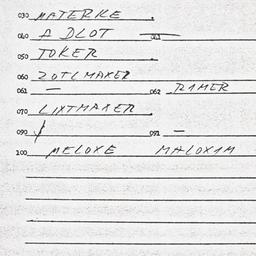 030 MATERKE.
040 A DLOT 041 —
050 TOKER.
060 ZOTLMAXER
061 — 062 RIMER
070 LIXTMAXER.
090 / 091 —
100 MELOXE MALOXIM